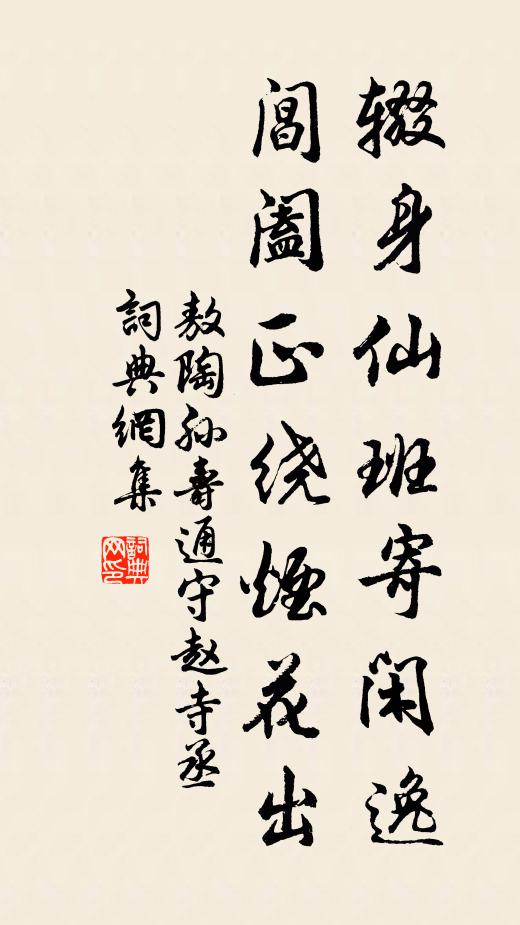 辍身仙班寄闲逸
閶阖正绕煙花出
敖陶孙寿通守赵寺丞
詞典網集
詞典网印